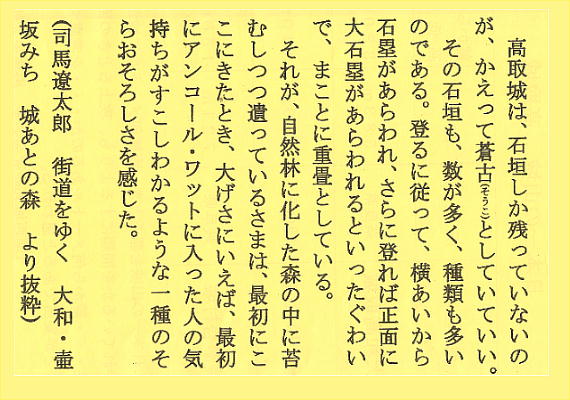 高取城は、石垣しか残っていないの
が、かえって蒼古(そうこ)としていていい。
　その石垣も、数が多く、種類も多い
のである。登るに従って、横あいから
石塁があらわれ、さらに登れば正面に
大石塁があらわれるといったぐわい
で、まことに重畳としている。
　それが、自然林に化した森の中に苔
むしつつ遺っているさまは、最初にこ
こにきたとき、大げさにいえば、最初
にアンコール・ワットに入った人の気
持ちがすこしわかるような一種のそ
らおそろしさを感じた。
(司馬遼太郎　街道をゆく　大和・壷
坂みち　城あとの森　より抜粋)